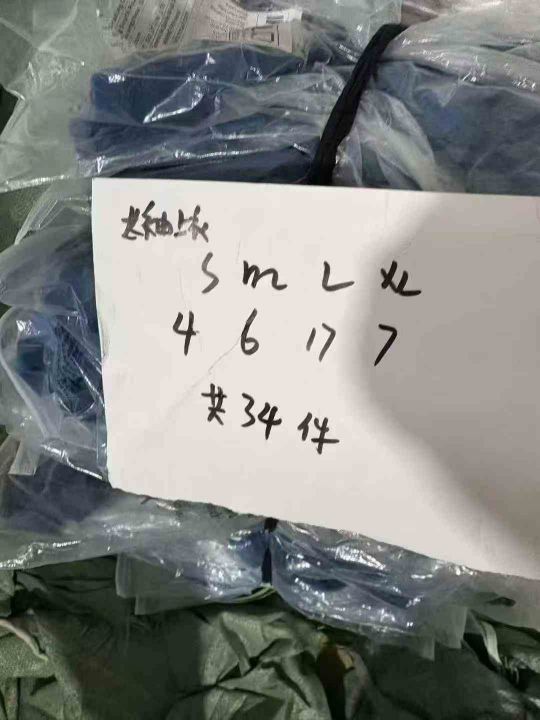 长袖上衣
S M L XL
4 6 17 7
共34件